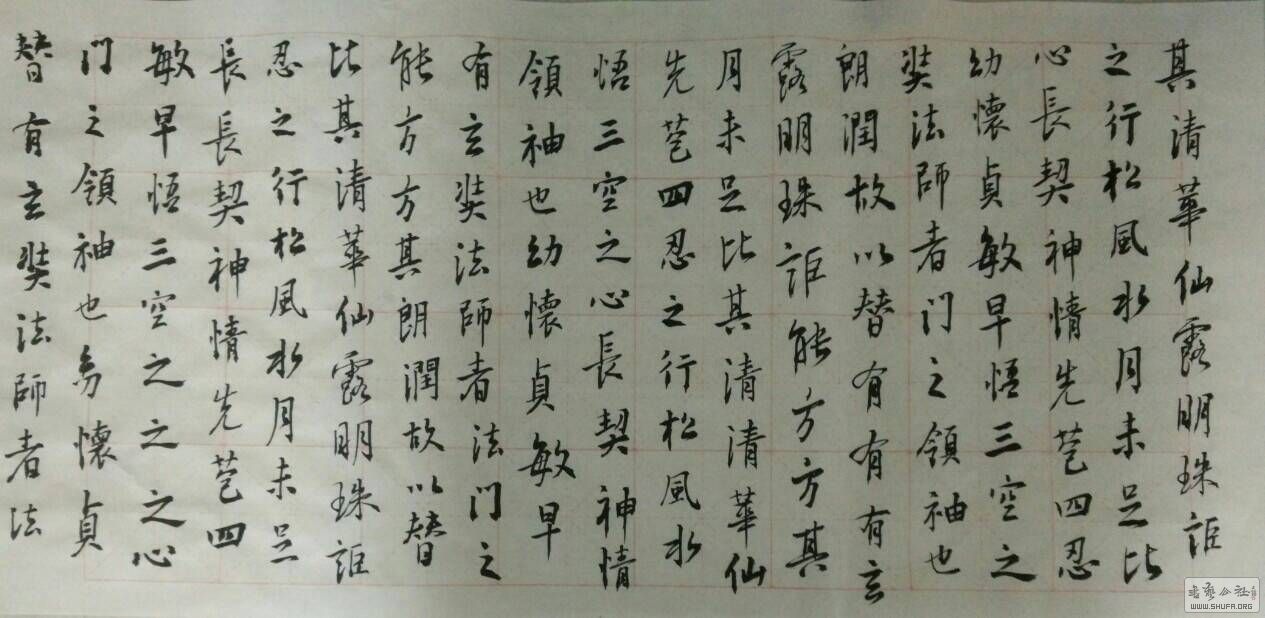 替有玄奘法師者法
门之領袖也幼懷貞
敏早悟三空之之之心
長長契神情先苞四
忍之行松風水月未足
比其清華仙露明珠詎
能方方其朗潤故以替
有玄奘法師者法门之
領袖也幼懷貞敏早
悟三空之心長契神情
先苞四忍之行松風水
月未足比其清清華仙
露明珠詎能方方其
朗潤故以替有有有玄
奘法師者门之領袖也
幼懷貞敏早悟三空之
心長契神情先苞四忍
之行松風水月未足比
其清華仙露明珠詎
书艺公社
WWW.SHUFA.ORG